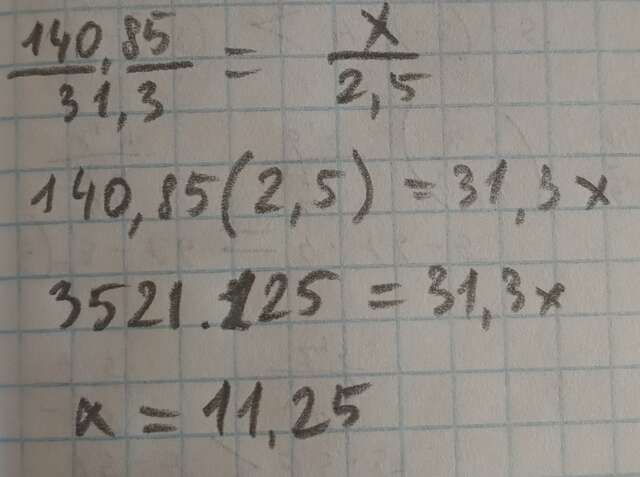 140,85/31,3 = x/2,5
140,85(2,5) = 31,3x
3521.125 = 31,3x
x = 11,25